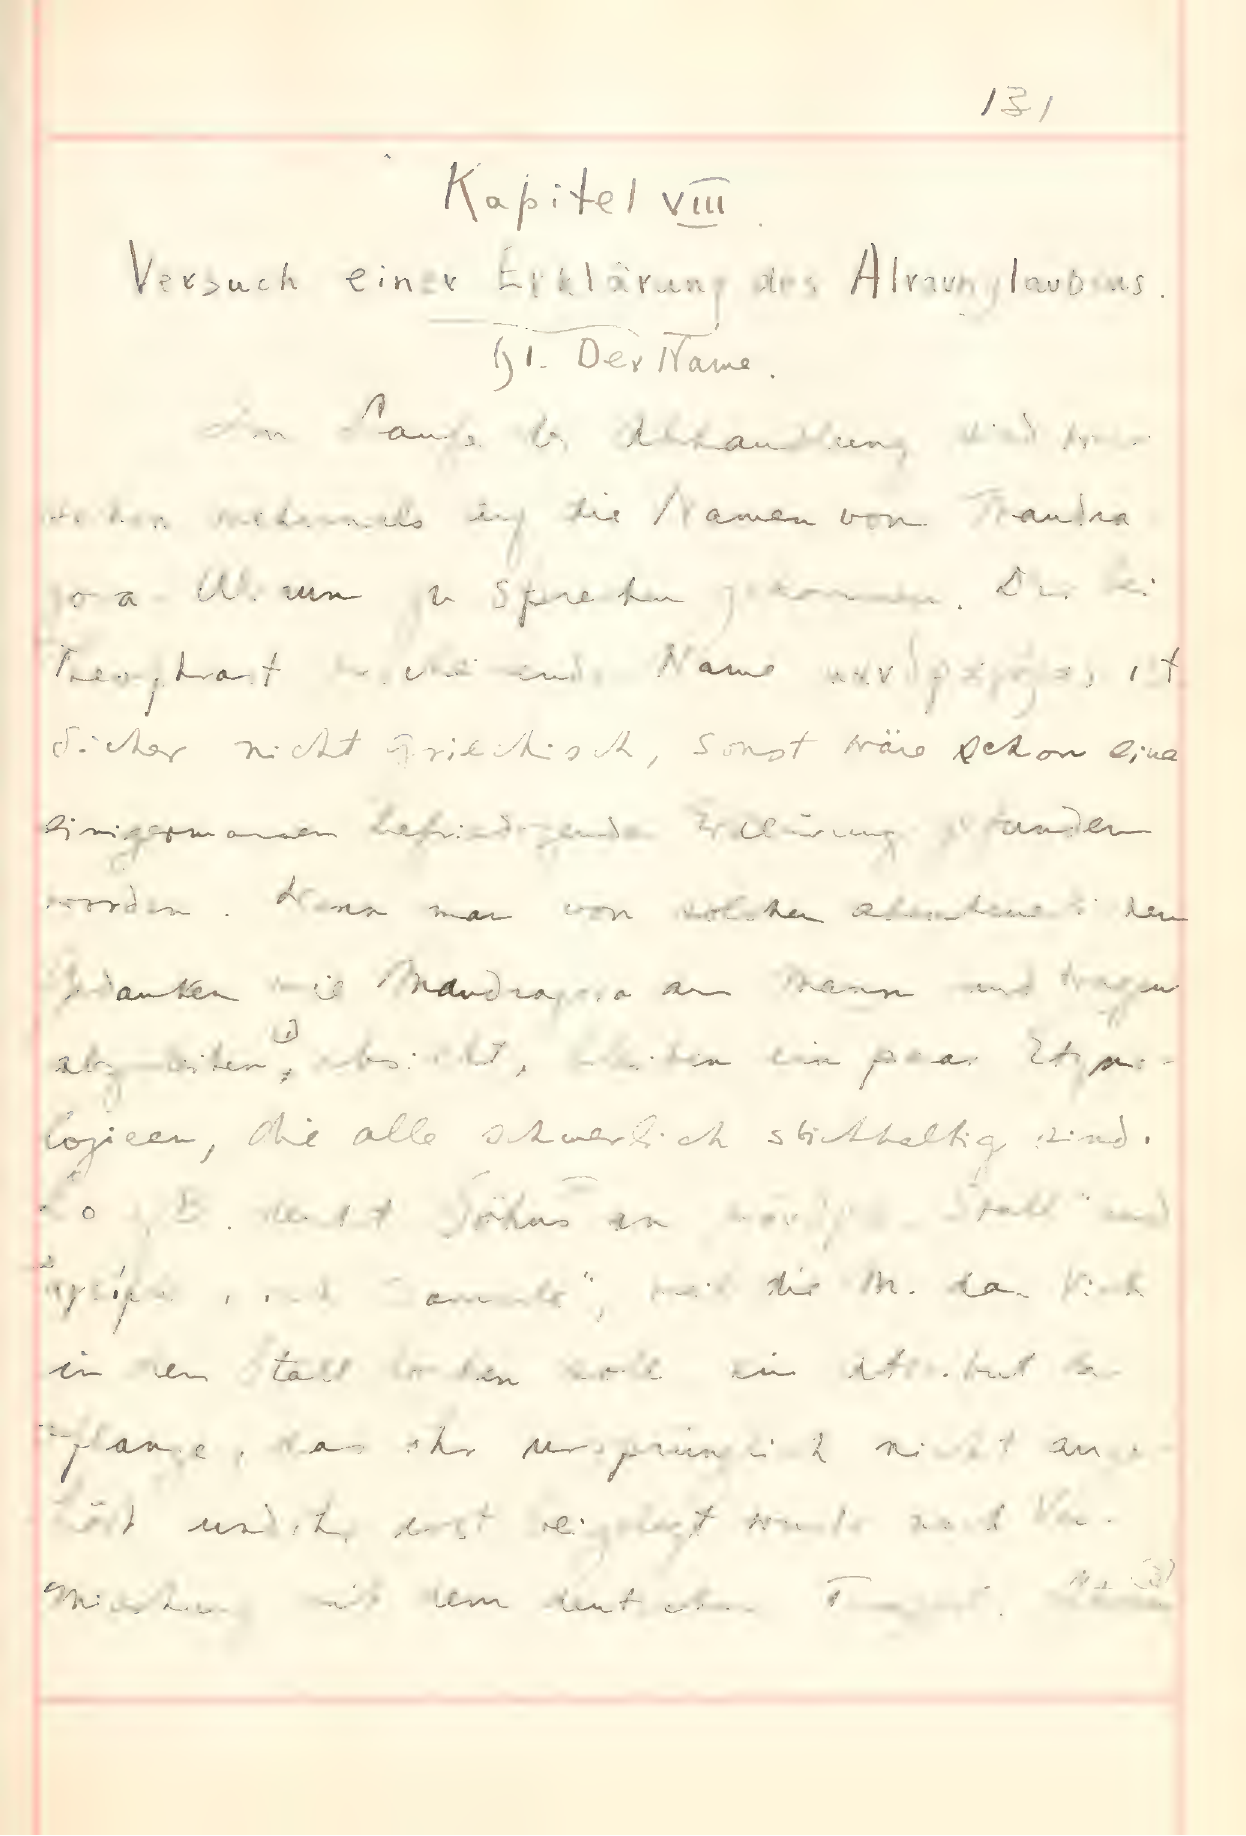 131
Kapitel VIII.
Versuch einer Erklärung des Alraunglaubens.
§1. Der Name.
Im Laufe der Abhandlung sind wir
schon mehrmals auf die Namen von Mandra
gora zu sprechen gekommen. Der bei
Theophrast erscheinende Name μανδραγόρας ist
sicher nicht griechisch, sonst wäre schon eine
einigermassen befriedigende Erklärung gefunden
worden. Wenn man von solchen abenteuerlichen
Gedanken wie Mandragora an Mann und tragen
abzuleiten 1), absieht, bleiben ein paar Etymo-
logieen, die alle schwerlich stichhaltig sind.
So z. B. denkt an μάνδρα Stall" und
ἀγείρω, ich sammle", weil die M. das Vieh
in den Stall locken soll ein Attribut der
Pflanze, das ihr ursprünglich nicht ange-
hört und ihr erst beigelegt wurde nach Ver-
mischung mit dem deutschen